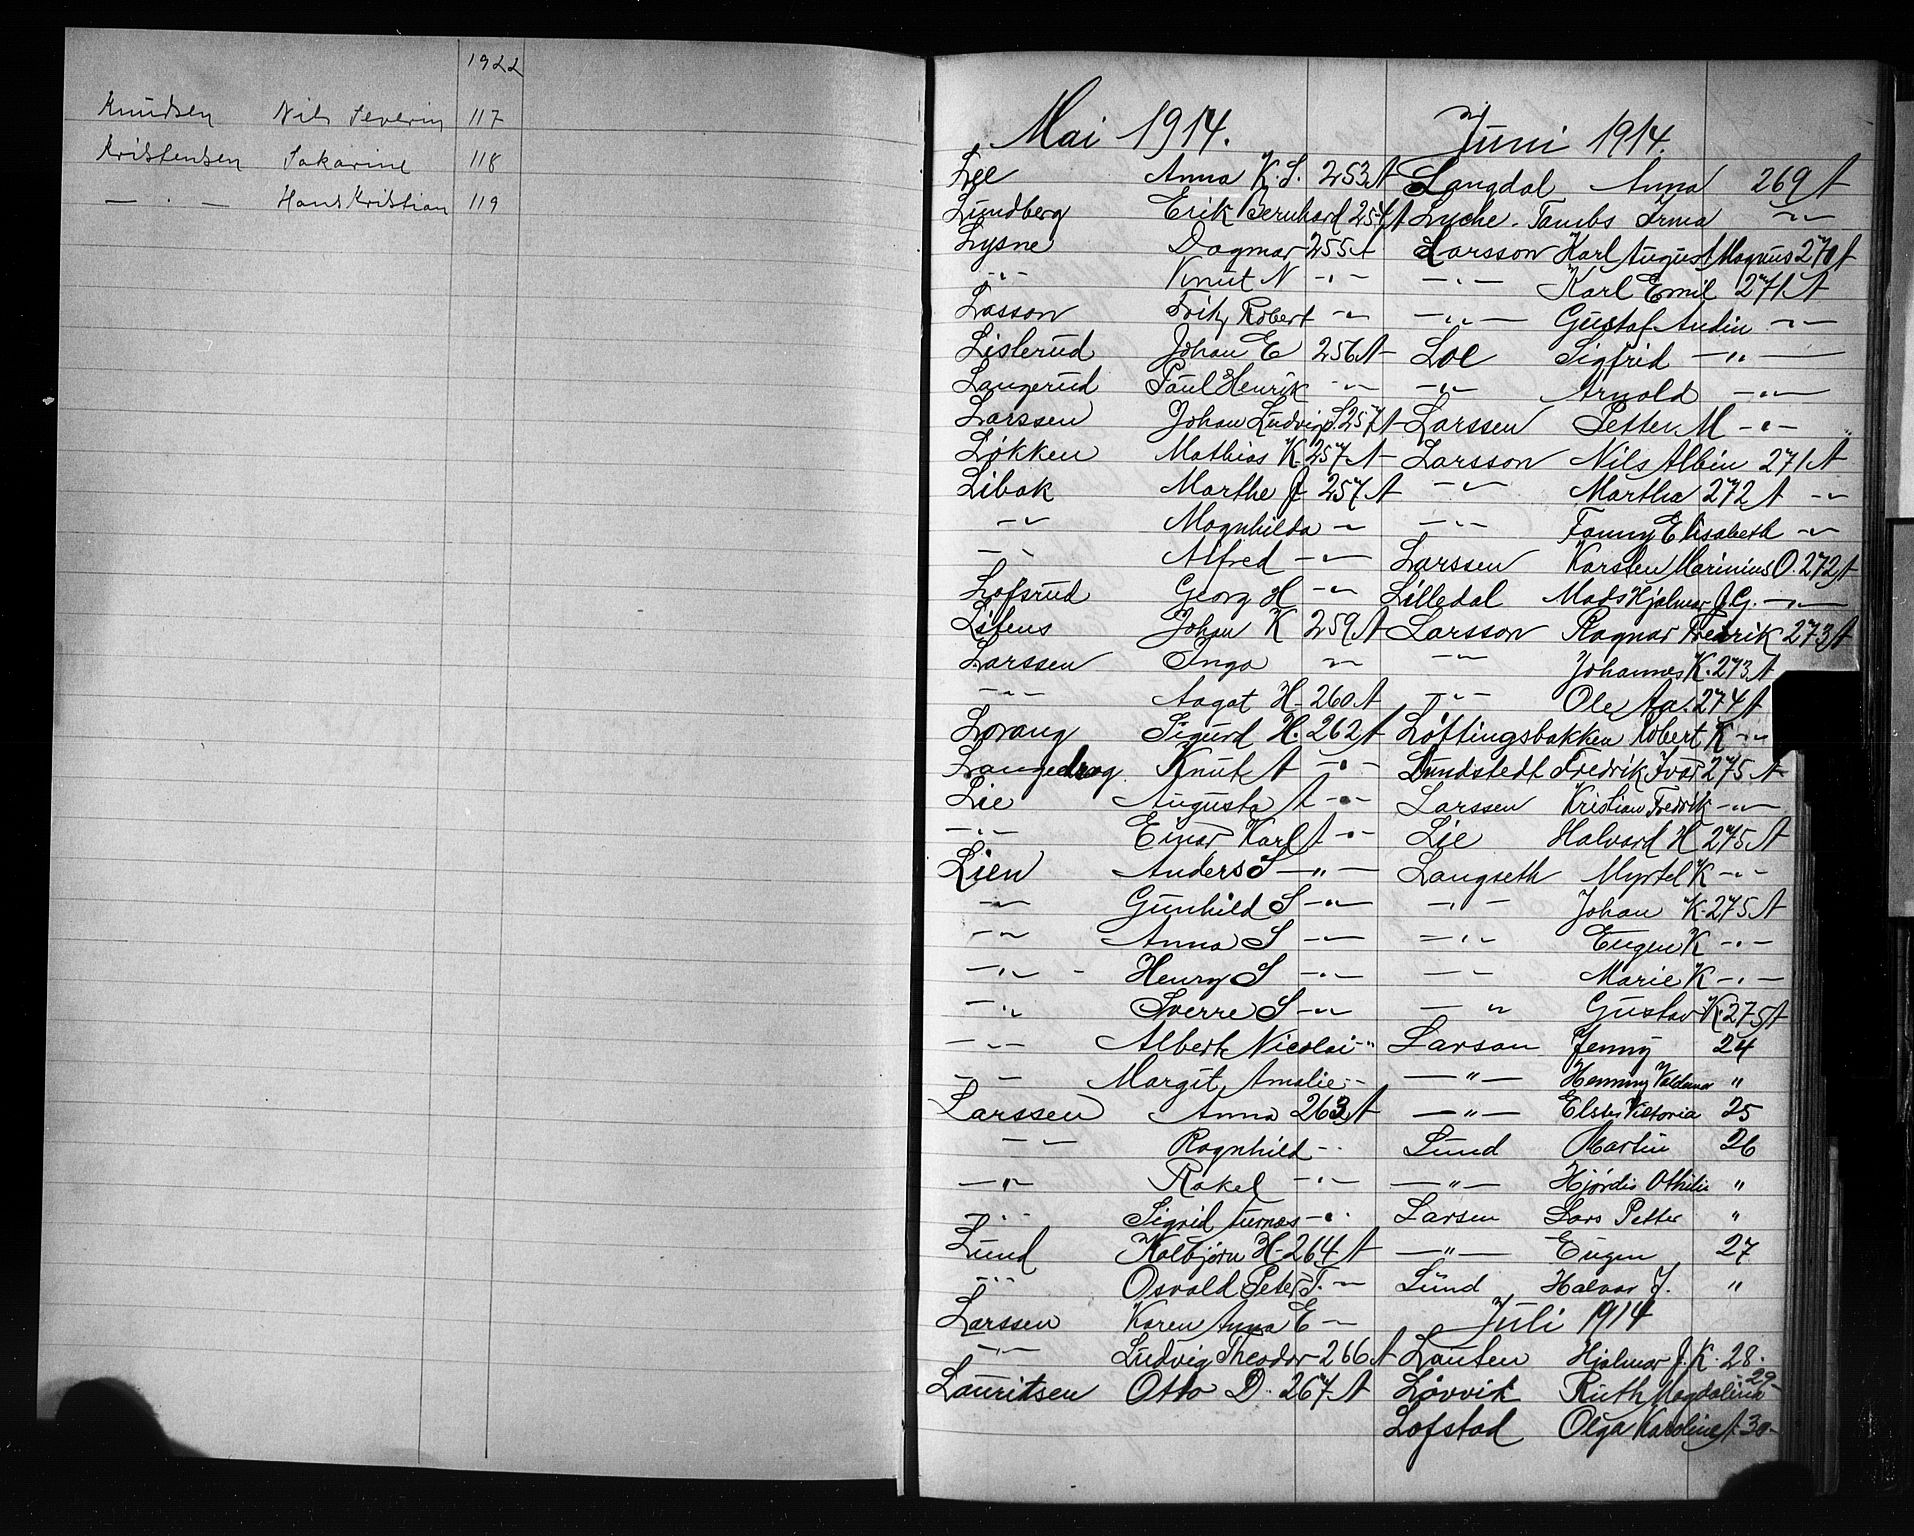 1922
Knudsen Nils Severin 117
Kristensen Sakarine 118
— . — Hans Kristian 119
Mai 1914.
Lee Anna K. S. 253 A
Lundberg Erik Bernhard 254 A
Lysne Dagmar 255 A
-"- Knut N -"-
Lasson Fritz Robert -"-
Lislerud Johan E 256 A
Langerud Paul Henrik -"-
Larssen Johan Ludvig S. 257 A
Løkken Mathias K. 257 A
Libak Marthe J 257 A
-"- Magnhilda -"-
-"- Alfred -"-
Lofsrud Georg H -"-
Johan K 259 A
Larssen Inga -"-
-"- Aagot H. 260 A
Lorang Sigurd H. 262 A
Langedrag. Knut A -"-
Lie Augusta A -"-
-"- Einar Karl A -"-
Lien Anders S -"-
-"- Gunhild S -"-
-"- Anna S -"-
-"- Henry S -"-
-"- Sverre S -"-
-"- Albert Nicolai -"-
-"- Margit Amalie -"-
Larssen Anna 263 A
-"- Ragnhild -"-
-"- Rakel -"-
-"- Sigrid -"-
Lund Kolbjørn H. 264 A
-"- Osvald Peter T. -"-
Larssen Karen Anna E -"-
-"- Ludvig Theodor 266 A
Lauritsen Otto D. 267 A
Juni 1914.
Langdal Anna 269 A
Lyche. Tambs Irma -"-
Larsson Karl August Magnus 270 A
-"- Karl Emil 271 A
-"- Gustaf Andin -"-
Loe Sigfrid -"-
-"- Arnold -"-
Larssen Petter M -"-
Larsson Nils Albin 271 A
-"- Martha 272 A -"-
-"- Fanny Elisabeth -"-
Larssen Karsten Marinius O. 272 A
Lilledal Mads Hjalmar J. G. -"-
Larsson Ragnar Fredrik 273 A
-"- Johannes K. 273 A
-"- Ole Aa. 274 A
Løftingsbakken Robert K -"-
Lundstedt Fredrik Ivar 275 A
Larssen Kristian Fredrik -"-
Lie Halvard H 275 A
Langseth Myrtel K -"-
-"- Johan K. 275 A
-"- Eugen K -"-
-"- Marie K -"-
-"- Gustav K. 275 A
Larson Jenny 24
-"- Henning Valdemar "
-"- Victoria 25
Lund Martin 26
-"- Hjørdis Othilie "
Larsen Lars Petter "
-"- Eugen 27
Lund Halvar J. "
Juli 1914
Lauten Hjalmar J. K. 28.
Løvvik Ruth Magdalina 29
Lofstad Olga Karoline A 30